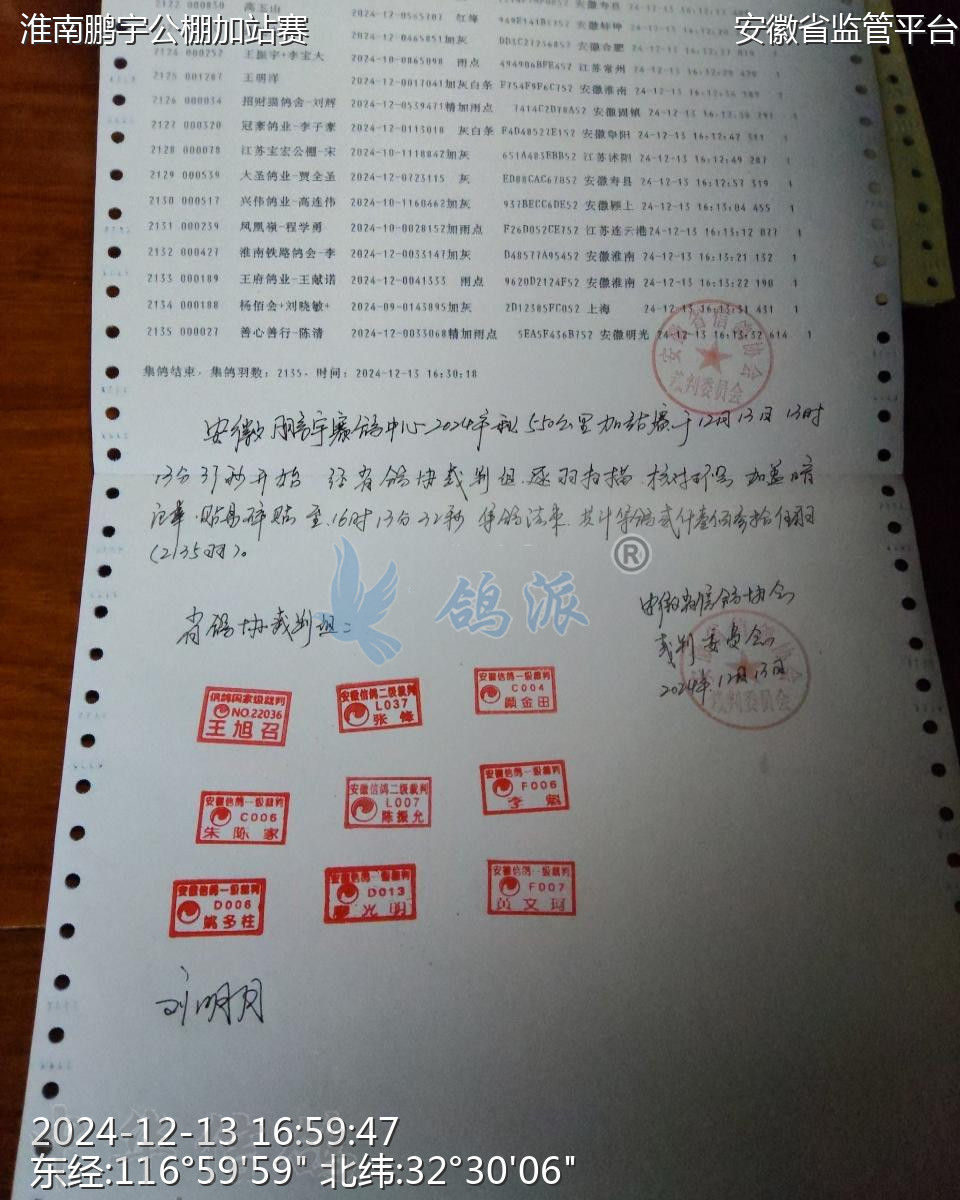 淮南鹏宇公棚加站赛
安徽省监管平台
2122 000830 高玉山 2024-12-0565707 红绛 安徽寿县
2024-12-0465851加灰 安徽合肥
2124 000252 王振宇+李宝大 2024-10-0865098 雨点 494906BFE452 江苏常州
2125 001287 王明洋 2024-12-0017041加灰白条 F754F9F6C752 安徽淮南 24-12-13
2126 000034 招财猫鸽舍-刘辉 2024-12-0539471精加雨点 7414C2D78A52 安徽固镇 24-12-13
2127 000320 冠豪鸽业-李子豪 2024-12-0113018 灰白条 F4D48527E152 安徽阜阳 24-12-13 16:12:42 381 1
2128 000078 江苏宝宏公棚-宋 2024-10-1118842加灰 651A483EBB52 江苏沭阳 24-12-13 16:12:49 287 1
2129 000539 大圣鸽业-贾全圣 2024-12-0723115 灰 ED88CAC67052 安徽寿县 24-12-13 16:12:57 319 1
2130 000517 兴伟鸽业-高连伟 2024-10-1160462加灰 937BECC6DE52 安徽颍上 24-12-13 16:13:04 455 1
2131 000239 凤凰嶺-程学勇 2024-10-0028152加雨点 F26D052CE752 江苏连云港24-12-13 16:13:12 077 1
2132 000427 淮南铁路鸽会-李 2024-12-0033147加灰 D48577A95452 安徽淮南 24-12-13 16:13:21 132 1
2133 000189 王府鸽业-王献诺 2024-12-0041333 雨点 9620D2124F52 安徽淮南 24-12-13 16:13:22 190 1
2134 000188 杨佰会+刘晓敏+ 2024-09-0143895加灰 2D12385FC052 上海 24-12-13 16:13:31 431 1
2135 000027 善心善行-陈清 2024-12-0033068精加雨点 5EA5F436B752 安徽明光 24-12-13 16:13:32 614 1
集鸽结束，集鸽羽数：2135，时间：2024-12-13 16:30:18
安徽省信鸽协会
裁判委员会
安徽鹏宇赛鸽中心2024年秋550公里加站赛于12月13日13时
13分37秒开始 经省鸽协裁判组逐羽扫描，核对环号 加盖暗
记章，贴易碎贴 至16时13分32秒 集鸽结束，共计集鸽贰仟壹佰叁拾伍羽
(2135羽)。
鸽派®
省鸽协裁判组：
安徽省信鸽协会
裁判委员会
2024年12月13日
裁判委员会
信鸽国家级裁判
NO.22036
王旭召
安徽信鸽二级裁判
L037
张锋
安徽信鸽一级裁判
C004
顾金田
安徽信鸽一级裁判
C006
朱陈家
安徽信鸽二级裁判
L007
陈振允
安徽信鸽一级裁判
F006
李
安徽信鸽一级裁判
D006
姚多柱
安徽信鸽一级裁判
D013
廖光明
安徽信鸽一级裁判
F007
黄文珂
刘明月
2024-12-13 16:59:47
东经:116°59'59" 北纬:32°30'06"